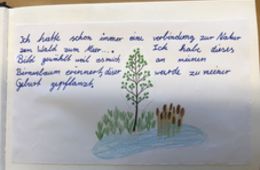 Ich hatte schon immer eine verbindung zur Natur
zum Wald zum Meer... Ich habe dieses
Bild gewählt weil es mich an meinen
Birnenbaum erinnert, dieser wurde zu meiner
Geburt gepflanzt.